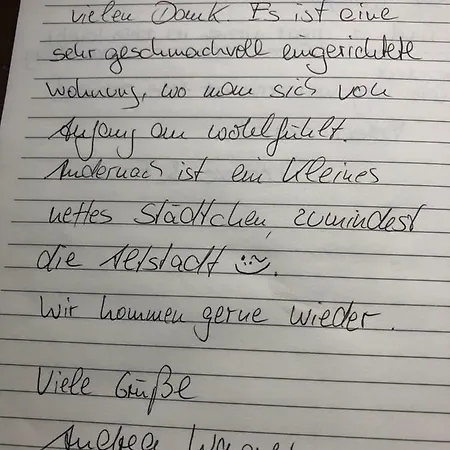 vielen Dank. Es ist eine
sehr geschmackvoll eingerichtete
Wohnung, wo man sich von
Anfang an wohlfühlt.
Andernach ist ein kleines
nettes Städtchen, zumindest
die Altstadt
Wir kommen gerne wieder.
Viele Grüße
Andrea